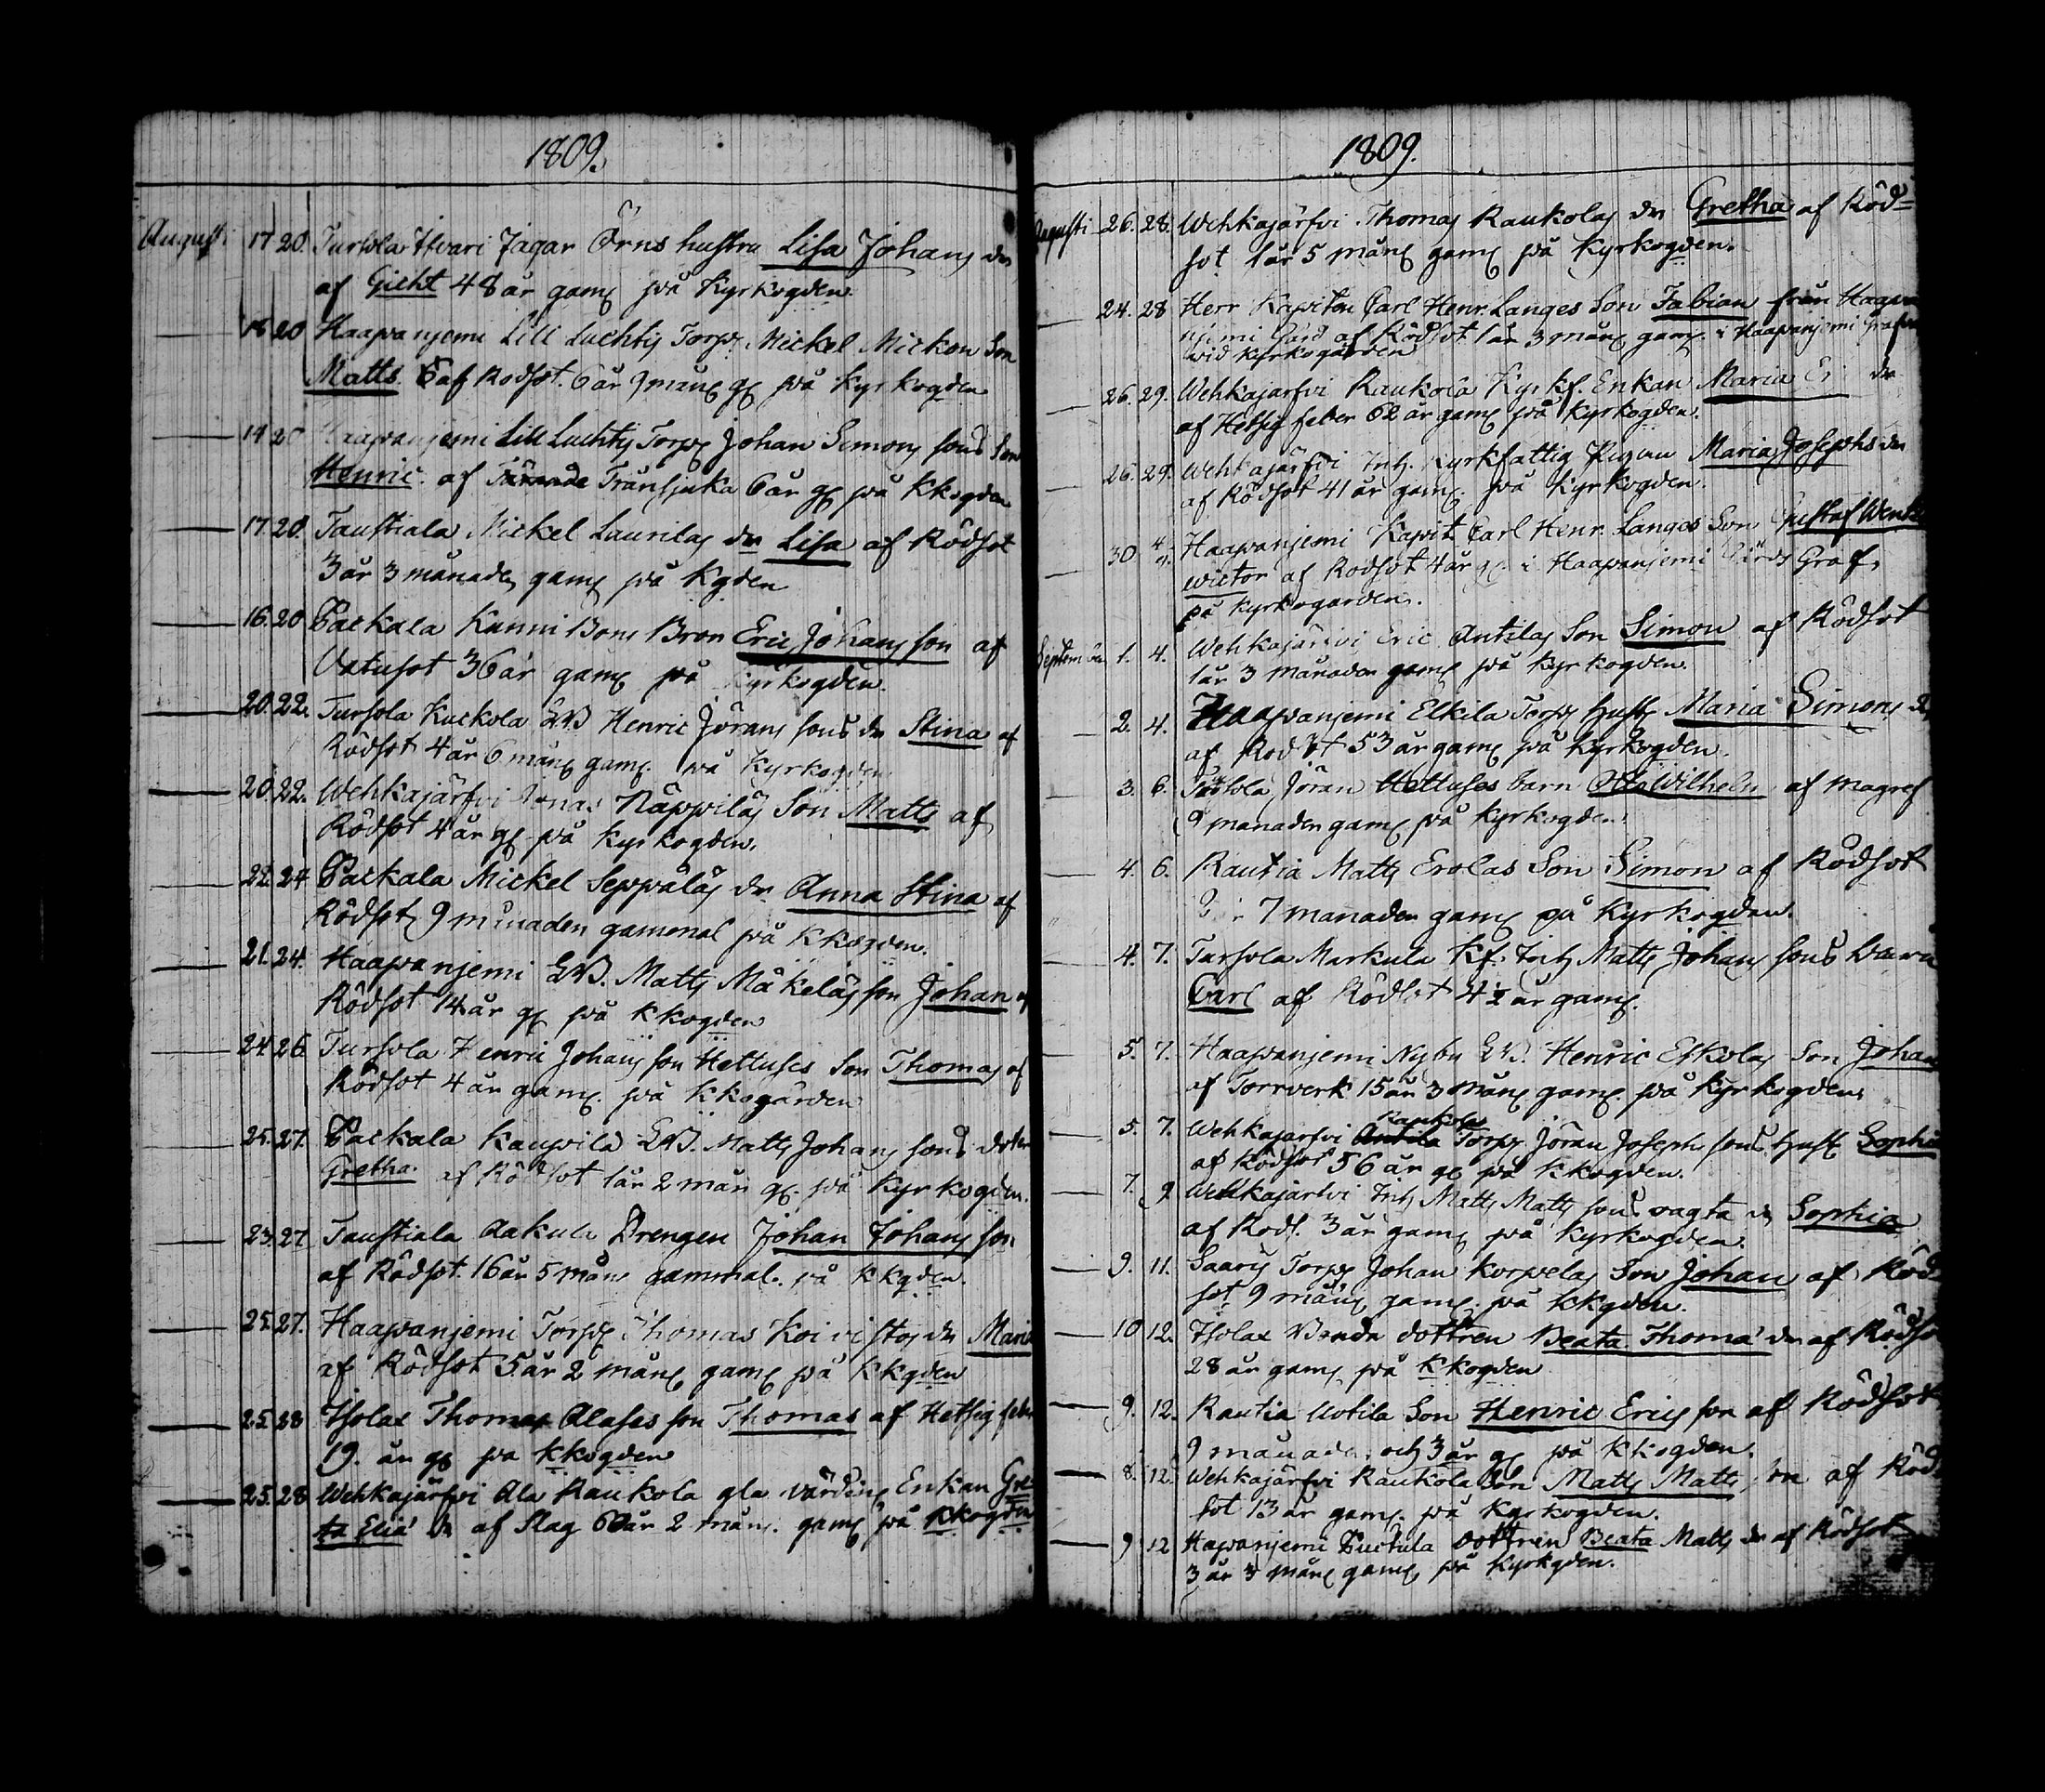 1809.
Augusti 17 20. Tursola Hvari Jägar Örns hustru Lisa Johans dr
af Gicht 48 år gamẜ på Kyrkogden.
— 18 20 Haapanjemi Lill Luchtis Torpr Mickel Mickon Son
Matts af Rödsot. 6 år 9 månẜ gẜ på Kyrkogden
— 19 20 Haapanjemi Lill Luchtis Torpẜ Johan Simons sons Son
Henric af Tränsjuka 6 år gẜ på Kkogden
— 17. 20. Taustiala Mickel Laurilas dr Lisa af Rödsot
3 år 3 månader gamẜ på Kgden
— 16. 20 Packala Kunni Bons Bror Eric Johans son af
Vatusot 36 år gamẜ på Kyrkogden.
— 20. 22. Tursola Kuckola LB Henric Jörans sons dr Stina af
Rödsot 4 år 6 månẜ gamẜ på Kyrkogden
— 20. 22. Wehkajärfvi Jonas Näppiläs Son Matts af
Rödsot 4 år gẜ på Kyrkogden.
— 22. 24 Packala Mickel Seppäläs dr Anna Stina af
Rödsot 9 månaden gammal på Kkogden.
— 21. 24. Haapanjemi LB. Matts Mäkeläs son Johan af
Rödsot 14 år gẜ på Kkogden
— 24 26. Tursola Henric Johans son Hettuses Son Thomas af
Rödsot 4 år gamẜ på Kkogården
— 25. 27. Packala Kauppila LB. Matts Johans sons dotter
Gretha. af Rödsot 1 år 2 mån gẜ på Kyrkogden.
— 23. 27 Taustiala Aakula Drengen Johan Johans son
af Rödsot. 16 år 5 mån gammal. på Kkgden.
— 25. 27. Haapanjemi Torpẜ Thomas Koivistos dr Maria
af Rödsot 5 år 2 månẜ gamẜ på Kkgden
— 25. 28 Isolax Thomas Alases son Thomas af Hetsig feber
19. år gẜ på Kkogden
— 25. 28 Wehkajärfvi Ala Raukola gla värdinẜ Enkan Gre
ta Eliæ dr af Slag 60 år 2 månẜ. gamẜ på Kkogden
1809.
Augusti 26. 28. Wehkajärfvi Thomas Raukolas dr Gretha af Röd=
sot 1 år 5 månẜ gamẜ på Kyrkogden.
— 24. 28 Herr Kapiten Carl Henr. Langes Son Fabian från Haapa
njemi Gård af Rödsot 1 år 3 månẜ gamẜ i Haapanjemi Grafven
wid kyrkogården
— 26. 29. Wehkajarfvi Raukola Kyrkf. Enkan Maria dr
af Hetsig feber 62 år gamẜ på Kyrkogden.
— 26. 29. Wehkajärfvi Inh. Kyrkfattig Pigan Maria Josephs dr
af Rödsot 41 år gamẜ på Kyrkogden.
— 30 4/4. Haapanjemi Kapit. Carl Henr. Langes Son Gustaf
Wictor af Rödsot 4 år gẜ i Haapanjemi Gårds Graf,
på kyrkogården.
September 1. 4. Wehkajärfvi Eric Antilas Son Simon af Rödsot
1 år 3 månader gamẜ på Kyrkogden.
— 2. 4. Haapanjemi Elkila Torpẜ Hustẜ Maria Simons dr
af Rödsot 53 år gamẜ på Kyrkogden.
— 3. 6. Tursola Jöran Hettuses barn Otto Wilhelm af Magref
9 månaden gamẜ på Kyrkogden.
— 4. 6. Rautia Matts Erolas Son Simon af Rödsot
7 månaden gamẜ på Kyrkogden.
— 4. 7. Tursola Markula Kf. Inh Matts Johans sons barn
Carl af Rödsot 4½ år gamẜ.
— 5. 7. Haapanjemi Nyby LB. Henric Eskolas Son Johan
af Torrverk 15 år 3 månẜ gamẜ på Kyrkogden.
— 5. 7. Wehkajarfvi Antila Raukolas Torpẜ Jöran Joseph sons hustẜ Sophia
af Rödsot 56 år gẜ på Kkogden.
— 7. 9. Wehkajärfvi Inh Matts Matts sons oägta dr Sophia
af Röds. 3 år gamẜ på Kyrkogden.
— 9. 11. Saaris Torpẜ Johan Korpelas Son Johan af Röd=
sot 9 månẜ gamẜ på Kkgden.
— 10 12. Isolax Bonde dottren Beata Thomæ dr af Rödsot
28 år gamẜ på Kkogden
— 9. 12. Rautia Uotila Son Henric Erics son af Rödsot
9 månader och 3 år gẜ på Kkogden.
— 8. 12. Wehkajärfvi Raukola Son Matts Matts son af Röd
sot 13 år gamẜ på Kyrkogden.
— 9 12 Hapanjemi dottren Beata Matts dr af Rödsot
3 år 3 månẜ gamẜ på Kyrkgden.